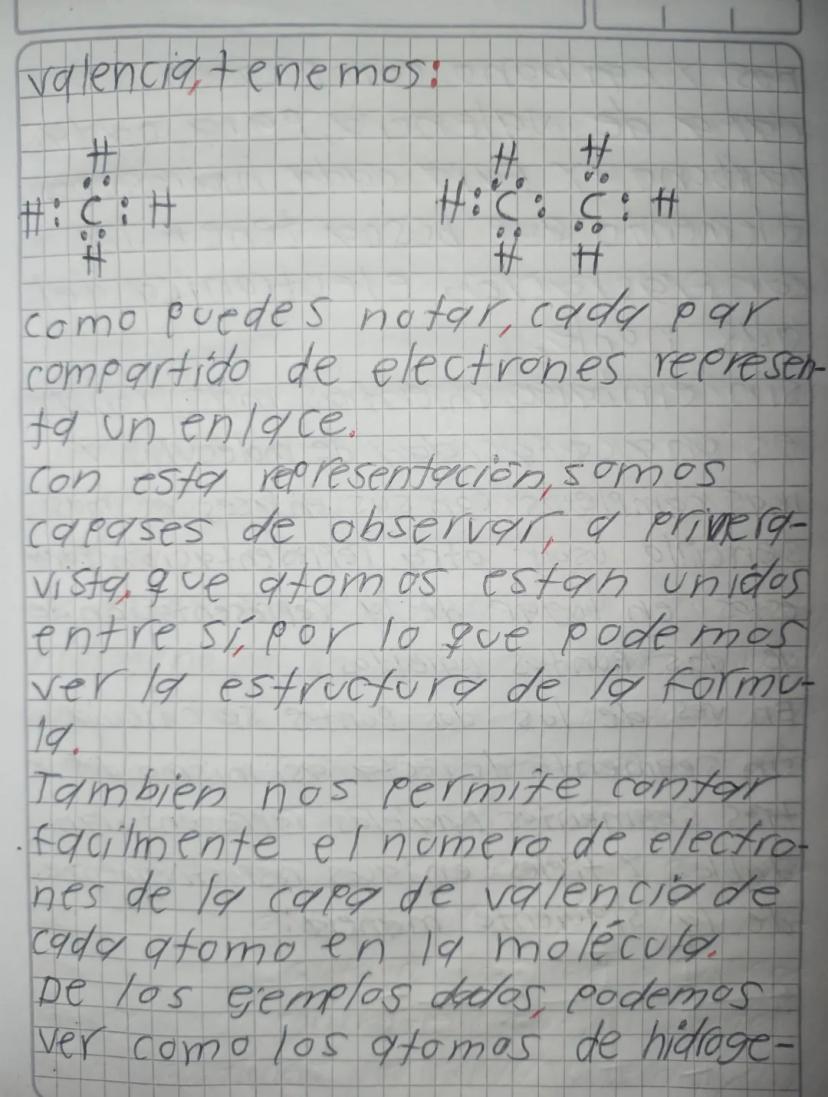 valencia, tenemos:
H H H
H : C : H H : C : C : H
H H H
como puedes notar, cada par
compartido de electrones represen-
ta un enlace.
con esta representación, somos
capases de observar, a primera-
vista, que atomos estan unidos
entre sí, por lo que podemos
ver la estructura de la formu-
la.
Tambien nos permite contar
facilmente el numero de electro-
nes de la capa de valencia de
cada atomo en la molécula.
De los ejemplos dados, podemos
ver como los atomos de hidroge-